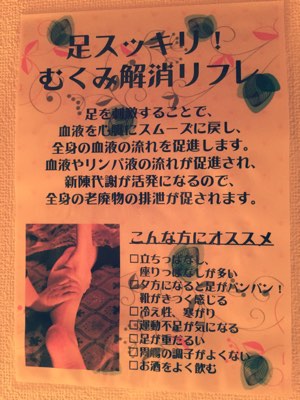 足スッキリ！
むくみ解消リフレ
足を刺激することで、
血液を心臓にスムーズに戻し、
全身の血液の流れを促進します。
血液やリンパ液の流れが促進され、
新陳代謝が活発になるので、
全身の老廃物の排泄が促されます。
こんな方にオススメ
□立ちっぱなし、
座りっぱなしが多い
□夕方になると足がパンパン！
靴がきつく感じる
□冷え性、寒がり
□運動不足が気になる
□足が重だるい
□胃腸の調子がよくない
□お酒をよく飲む